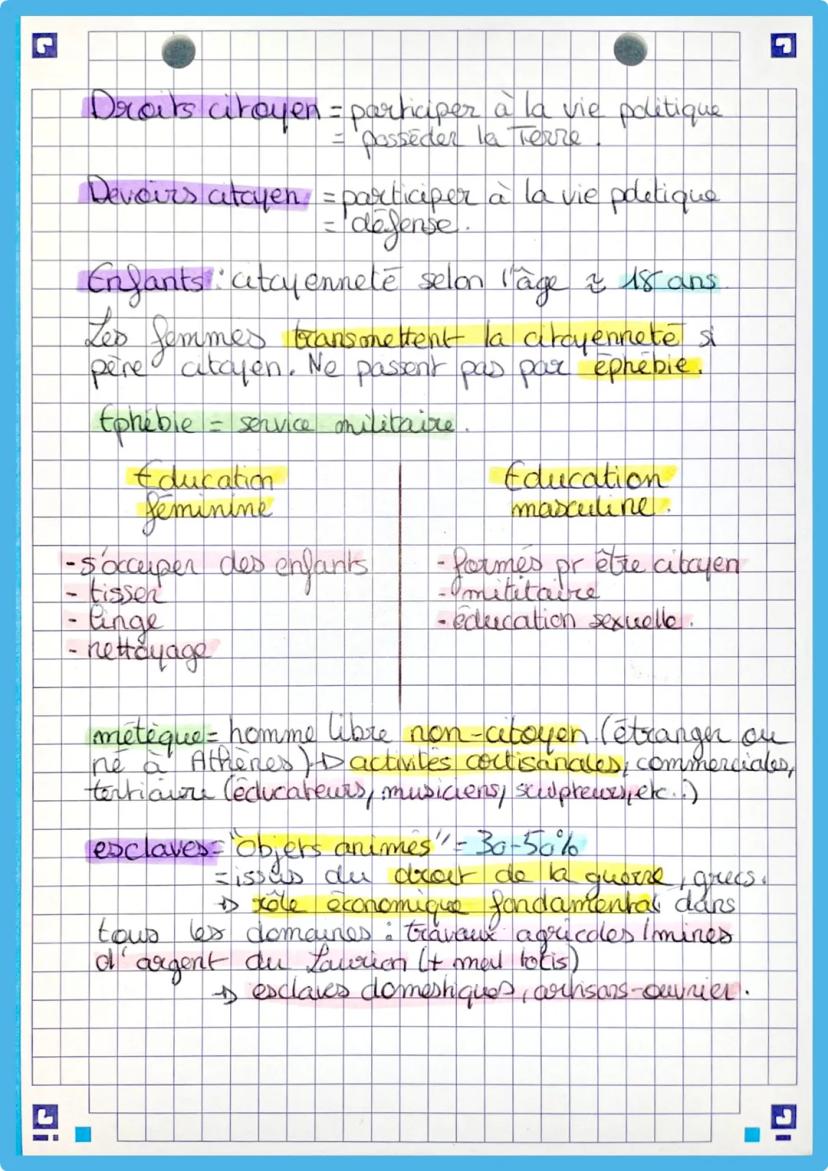 Droits citoyen = participer à la vie politique
= posséder la Terre.
Devoirs citoyen = participer à la vie politique
= défense.
Enfants : citoyenneté selon l'âge ≈ 18 ans
Les femmes transmettent la citoyenneté si
père citoyen. Ne passent pas par éphébie.
Ephébie = service militaire.
Education
féminine
- s'occuper des enfants
- tisser
- linge
- nettoyage
Education
masculine.
- formés pr être citoyen
- militaire
- éducation sexuelle.
métèque = homme libre non-citoyen (étranger ou
né à Athènes) → activités artisanales, commerciales,
tertiaire (éducateurs, musiciens, sculpteurs, etc..)
esclaves = "objets animés" = 30-50%
= issus du droit de la guerre, grecs.
→ rôle économique fondamental dans
tous les domaines : travaux agricoles / mines
d'argent du Laurion (+ lotis)
→ esclaves domestiques, artisans-ouvrier.